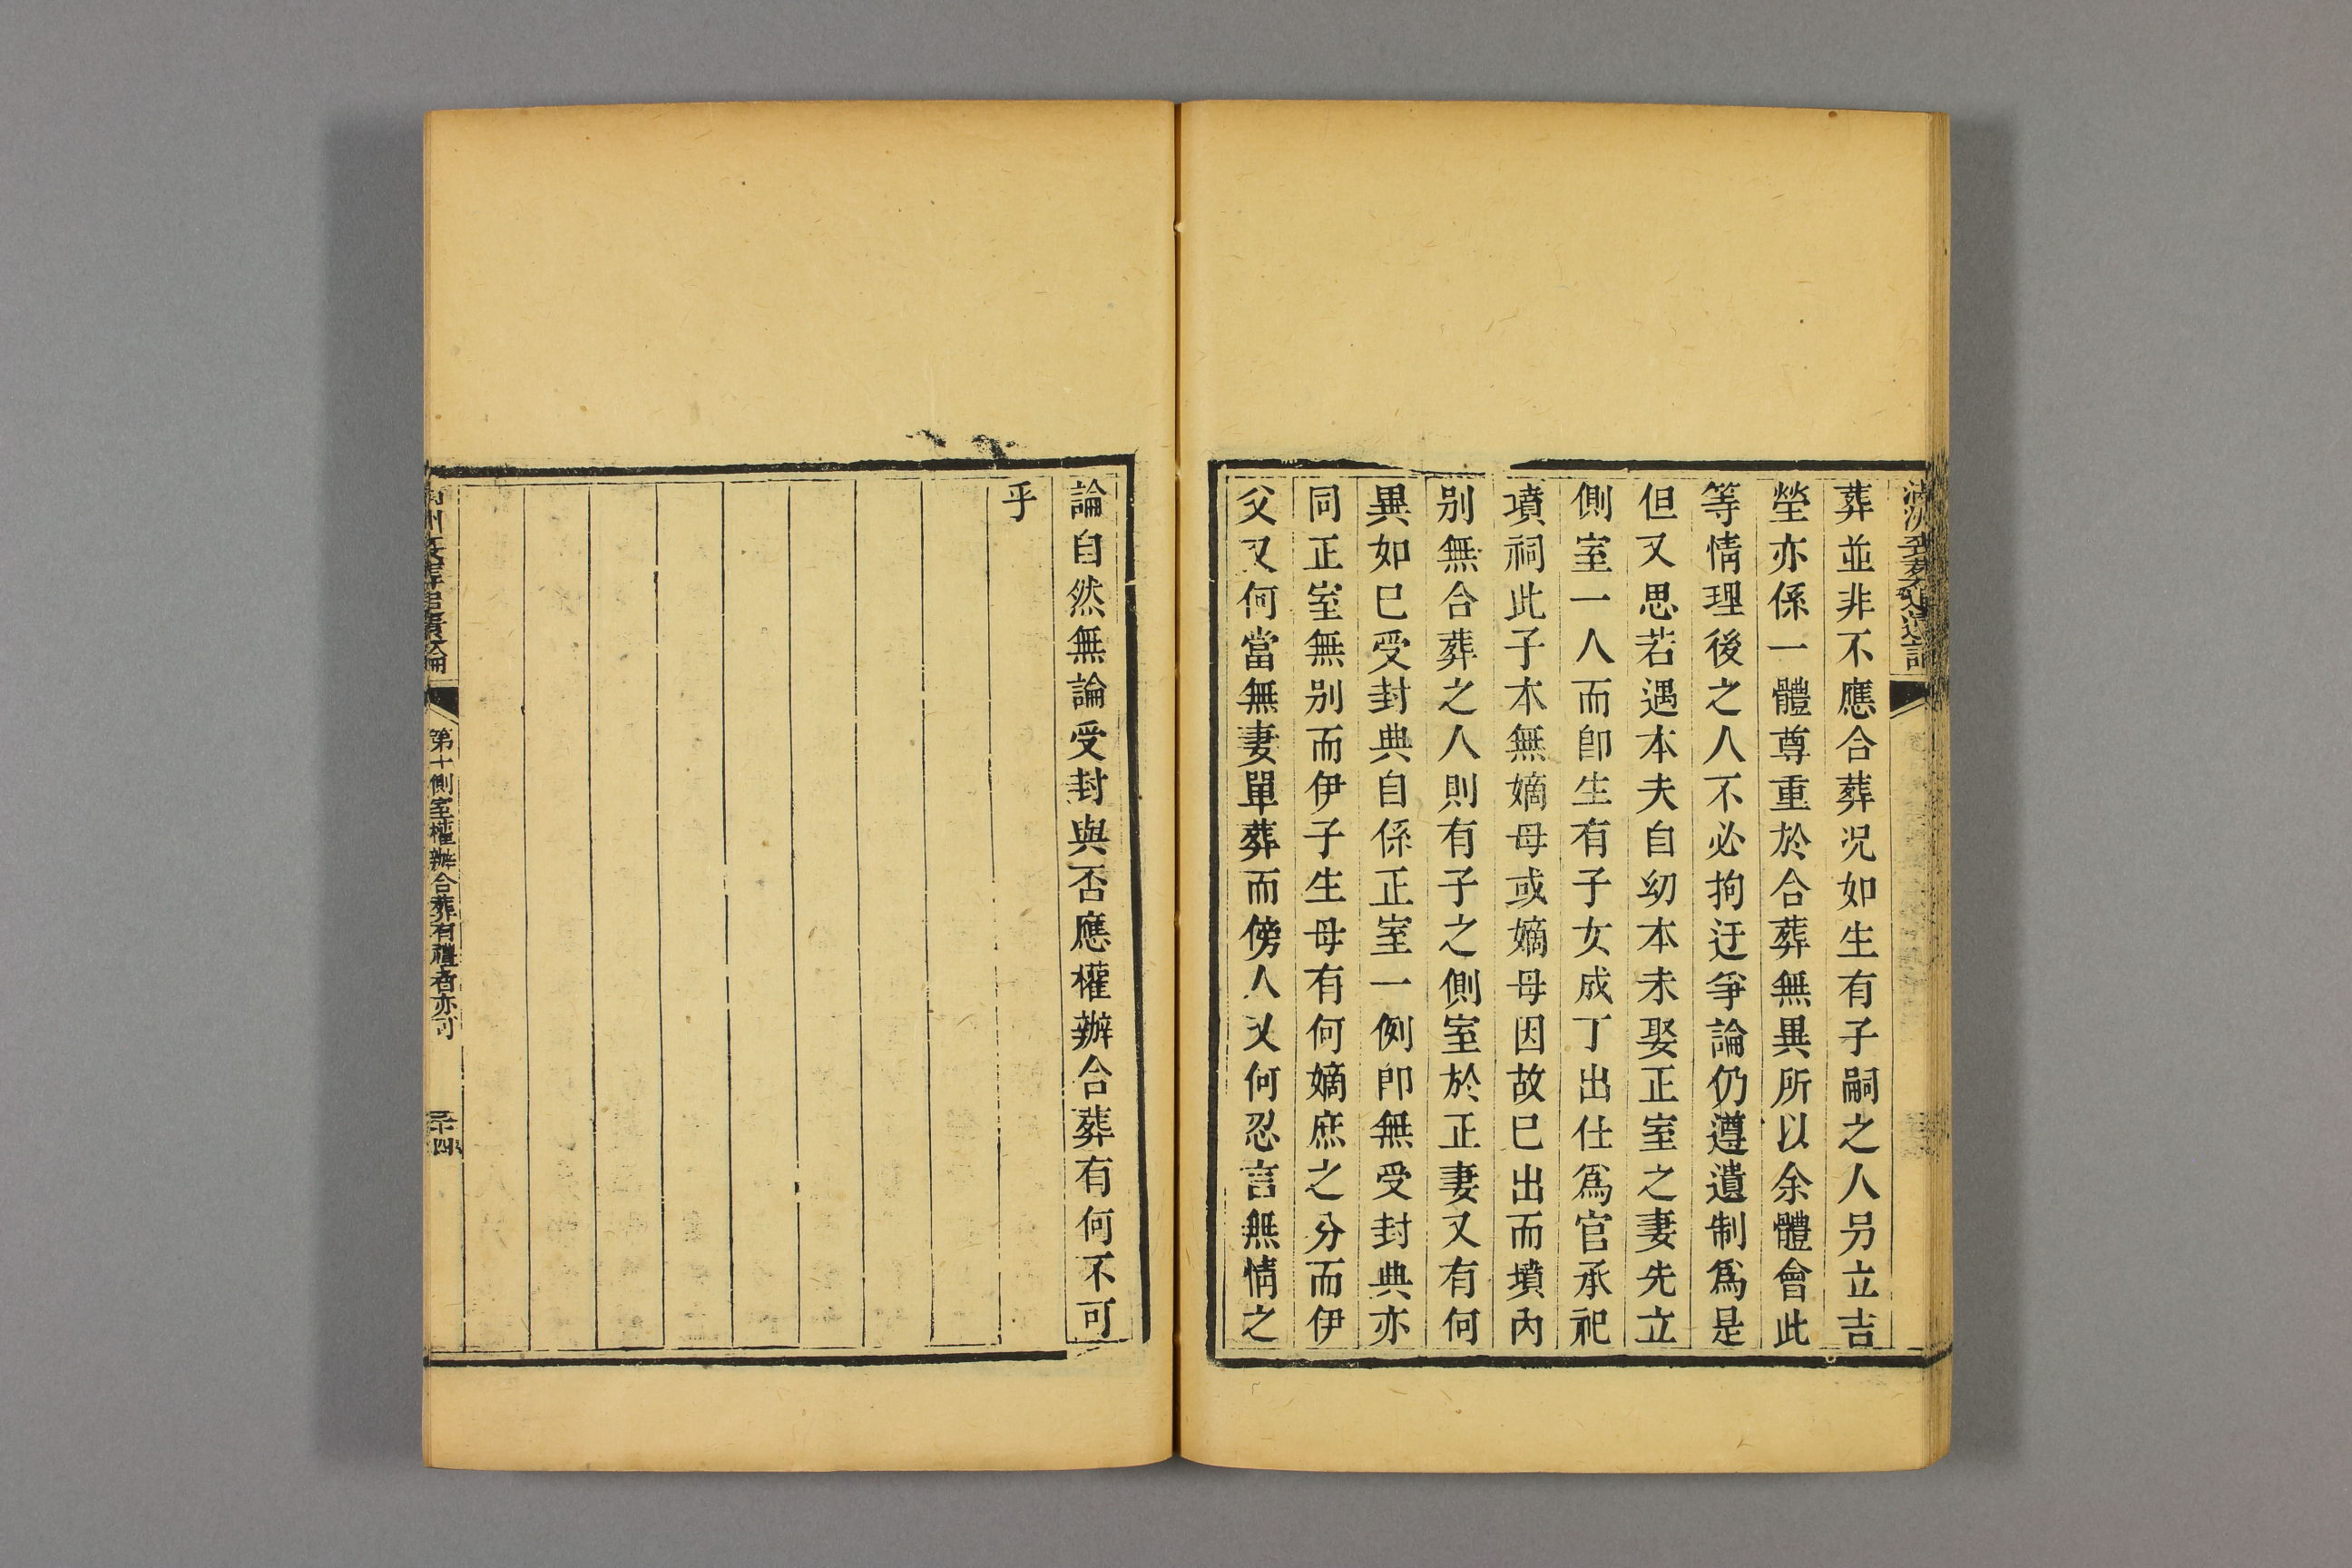 葬並非不應合葬况如生有子嗣之人另立吉
塋亦係一體尊重於合葬無異所以余體會此
等情理後之人不必拘迂爭論仍遵遺制爲是
但又思若遇本夫自幼本未娶正室之妻先立
側室一人而卽生有子女成丁出仕爲官承祀
墳祠此子本無嫡母或嫡母因故已出而墳內
别無合葬之人則有子之側室於正妻又有何
異如已受封典自係正室一例卽無受封典亦
同正室無别而伊子生母有何嫡庶之分而伊
父又何當無妻單葬而傍人又何忍言無情之
論自然無論受封與否應權辦合葬有何不可
乎
第十側室權辦合葬有禮者亦可
三十四